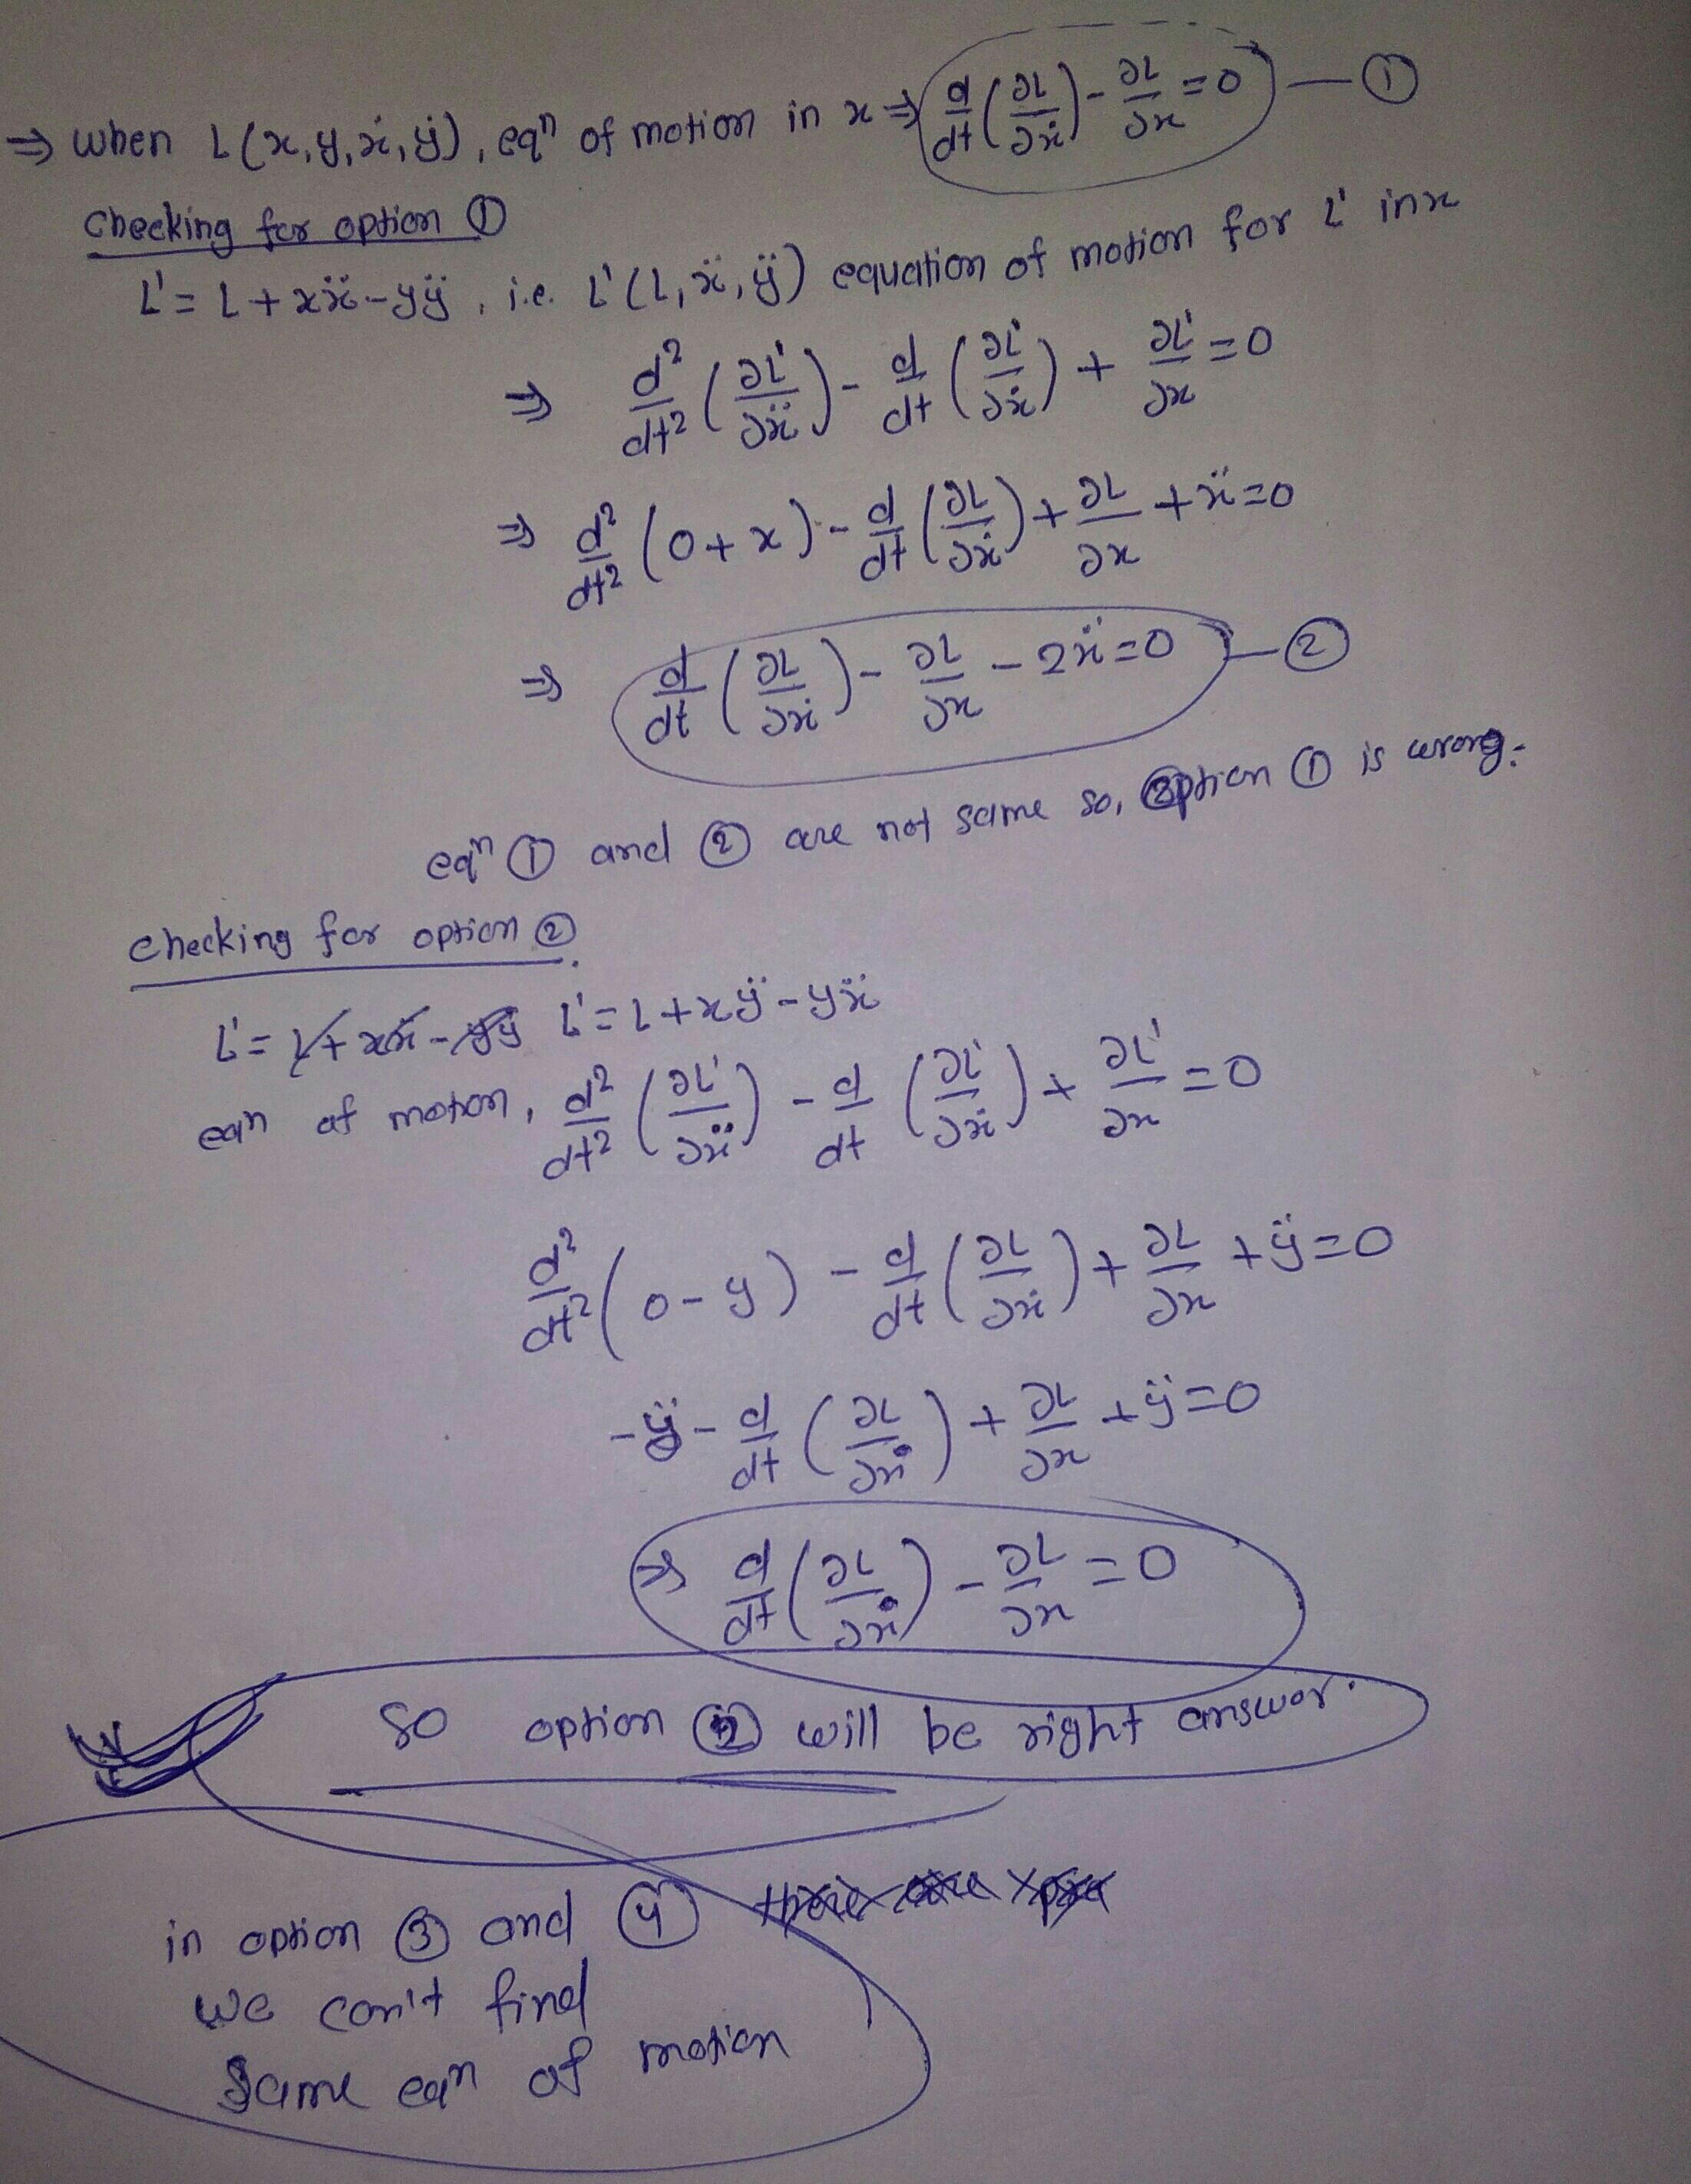 ⇒ when L(x,y,ẋ,ẏ), eqⁿ of motion in x ⇒ d/dt (∂L/∂ẋ) - ∂L/∂x = 0 — ①
Checking for option ①
L' = L + xẍ - yÿ, i.e. L'(L, ẍ, ÿ) equation of motion for L' in x
⇒ d²/dt² (∂L'/∂ẍ) - d/dt (∂L'/∂ẋ) + ∂L'/∂x = 0
⇒ d²/dt² (0 + x) - d/dt (∂L/∂ẋ) + ∂L/∂x + ẍ = 0
⇒ d/dt (∂L/∂ẋ) - ∂L/∂x - 2ẍ = 0 — ②
eqⁿ ① and ② are not same so, option ① is wrong.
checking for option ②
L' = L + xÿ - yẍ
eqⁿ of motion, d²/dt² (∂L'/∂ẍ) - d/dt (∂L'/∂ẋ) + ∂L'/∂x = 0
d²/dt² (0 - y) - d/dt (∂L/∂ẋ) + ∂L/∂x + ÿ = 0
-ÿ - d/dt (∂L/∂ẋ) + ∂L/∂x + ÿ = 0
⇒ d/dt (∂L/∂ẋ) - ∂L/∂x = 0
so option ② will be right answer.
in option ③ and ④
we con't find
same eqⁿ of motion